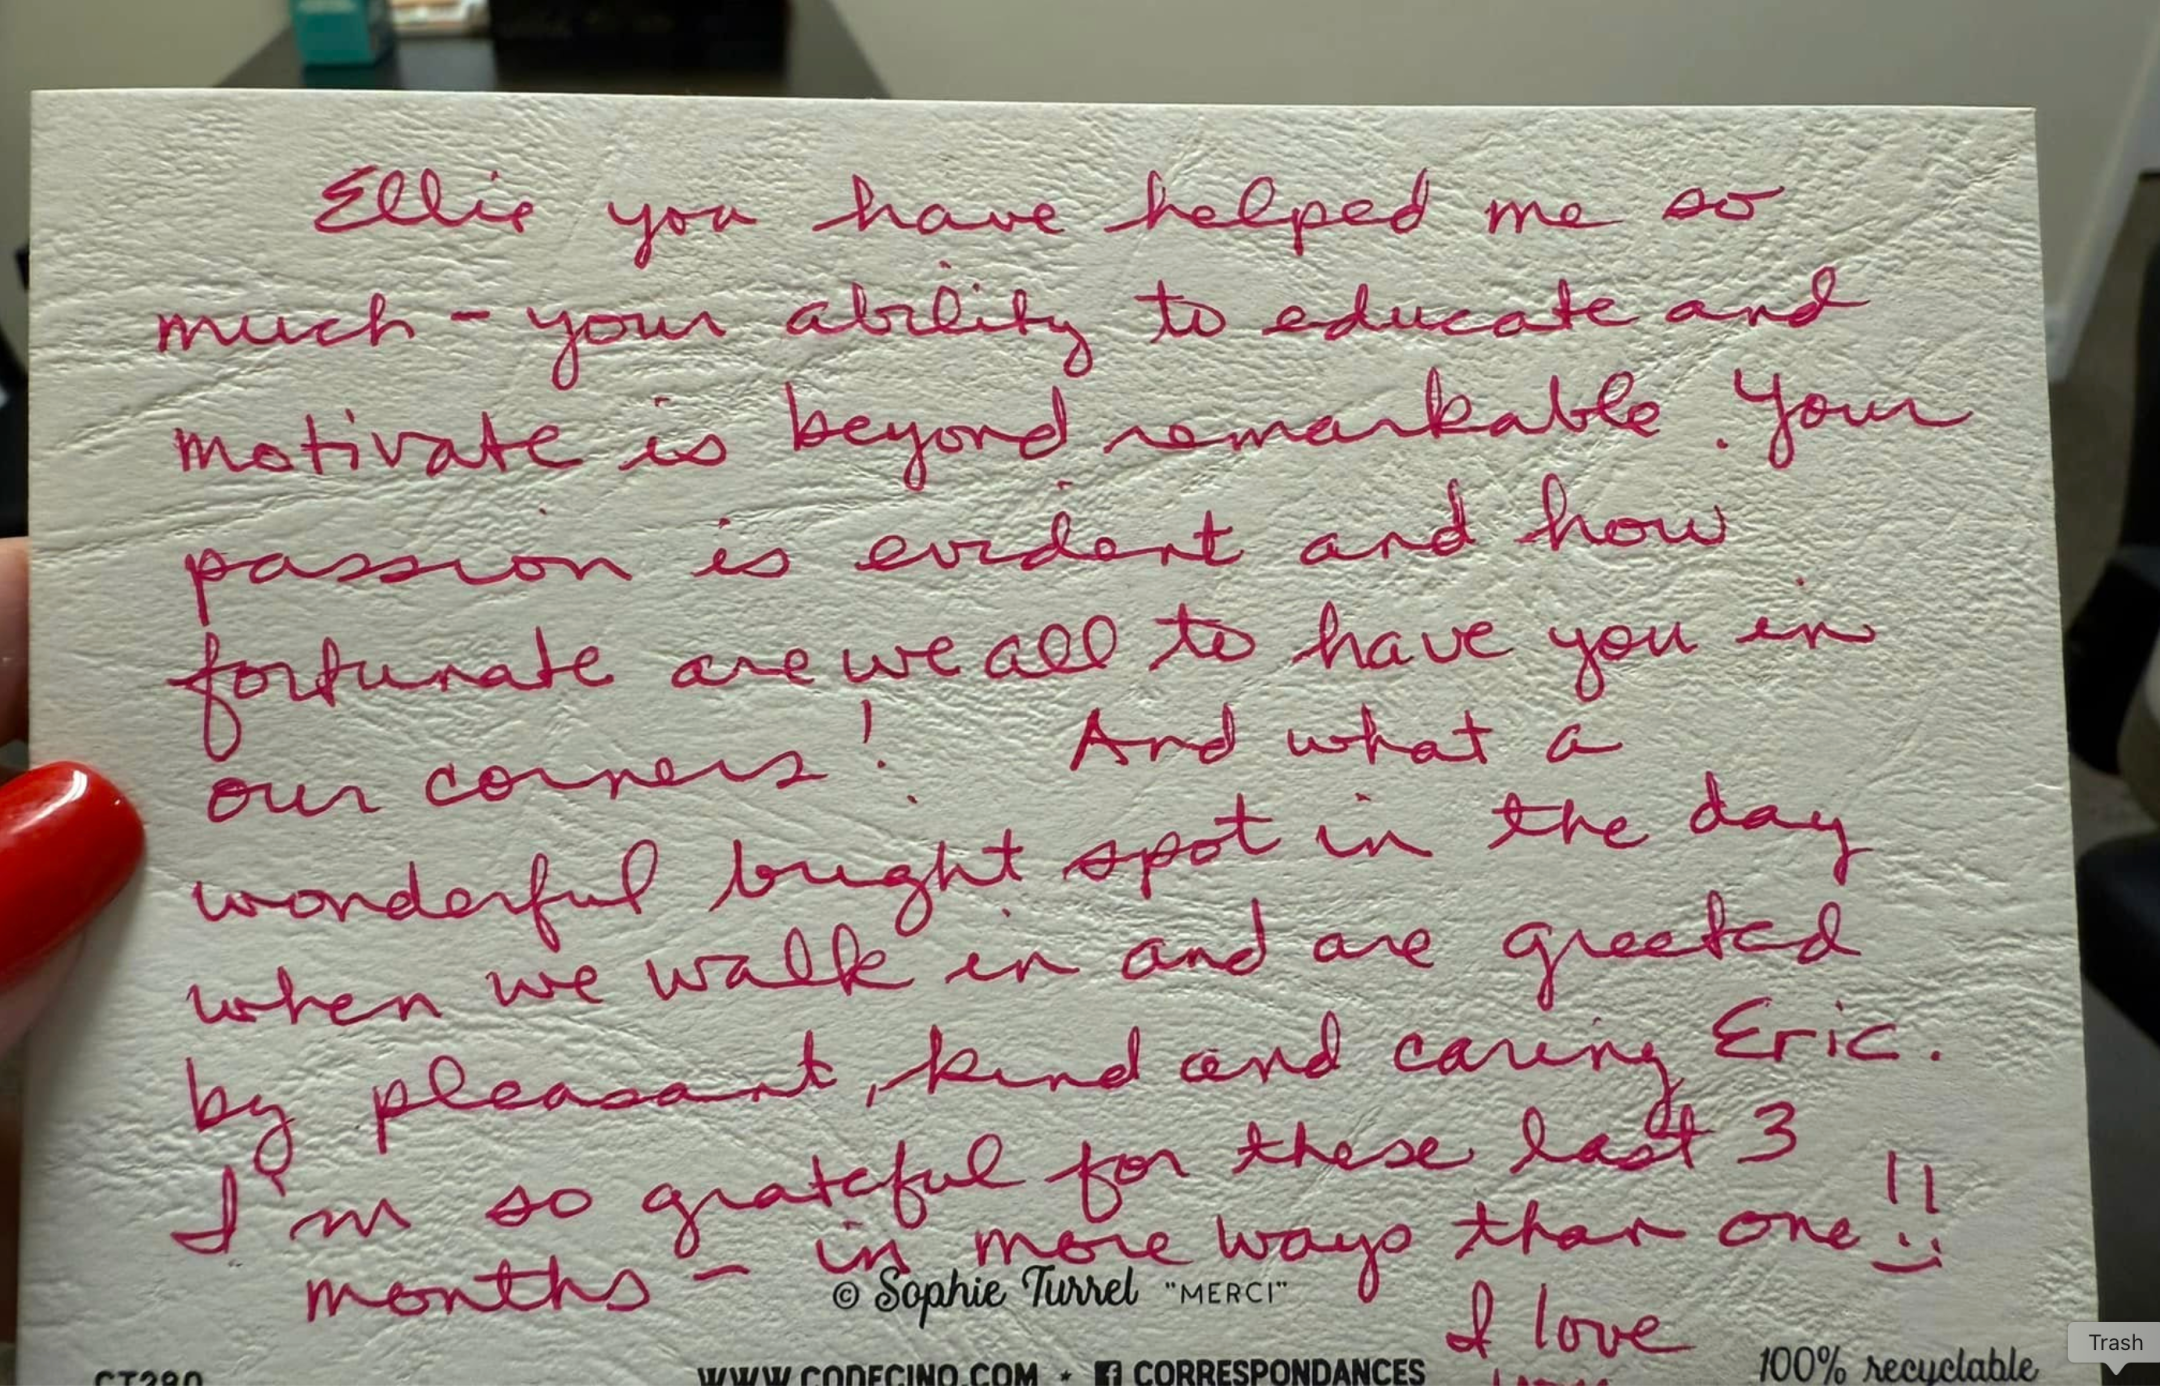 Ellie you have helped me so
much - your ability to educate and
motivate is beyond remarkable. Your
passion is evident and how
fortunate are we all to have you in
our corners! And what a
wonderful bright spot in the day
when we walk in and are greeted
by pleasant, kind and caring Eric.
I'm so grateful for these last 3
months - in more ways than one!!
© Sophie Turrel "MERCI"
I love
you
CT280
WWW.CODECINO.COM * CORRESPONDANCES
100% recyclable
Trash